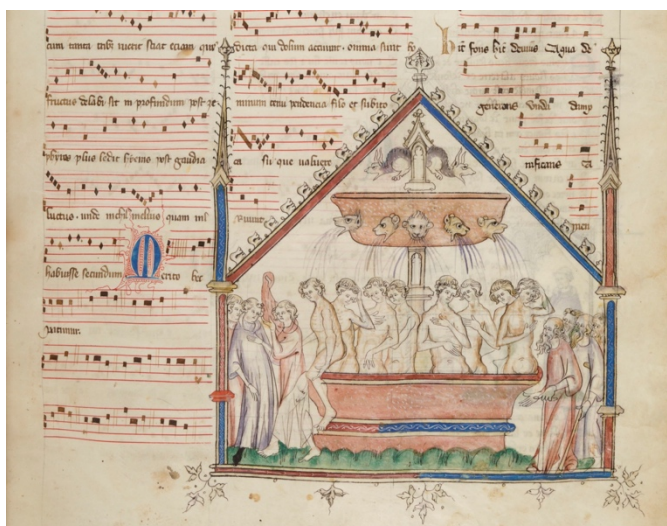 cum tanta tribu ruerit sciat eciam
fructus delabi. sit in profundum post ze
phyros plus ledit hyemps post gaudia
luctus. unde nichil melius quam nil
habuisse secundum Merito hec
patimur.
qui dolum acuunt. omnia sunt ho
minum tenui pendencia filo et subito
ca su que ualuere
ruunt.
Hic fons hic deuius Aqua de
generans Unda damp
nificans